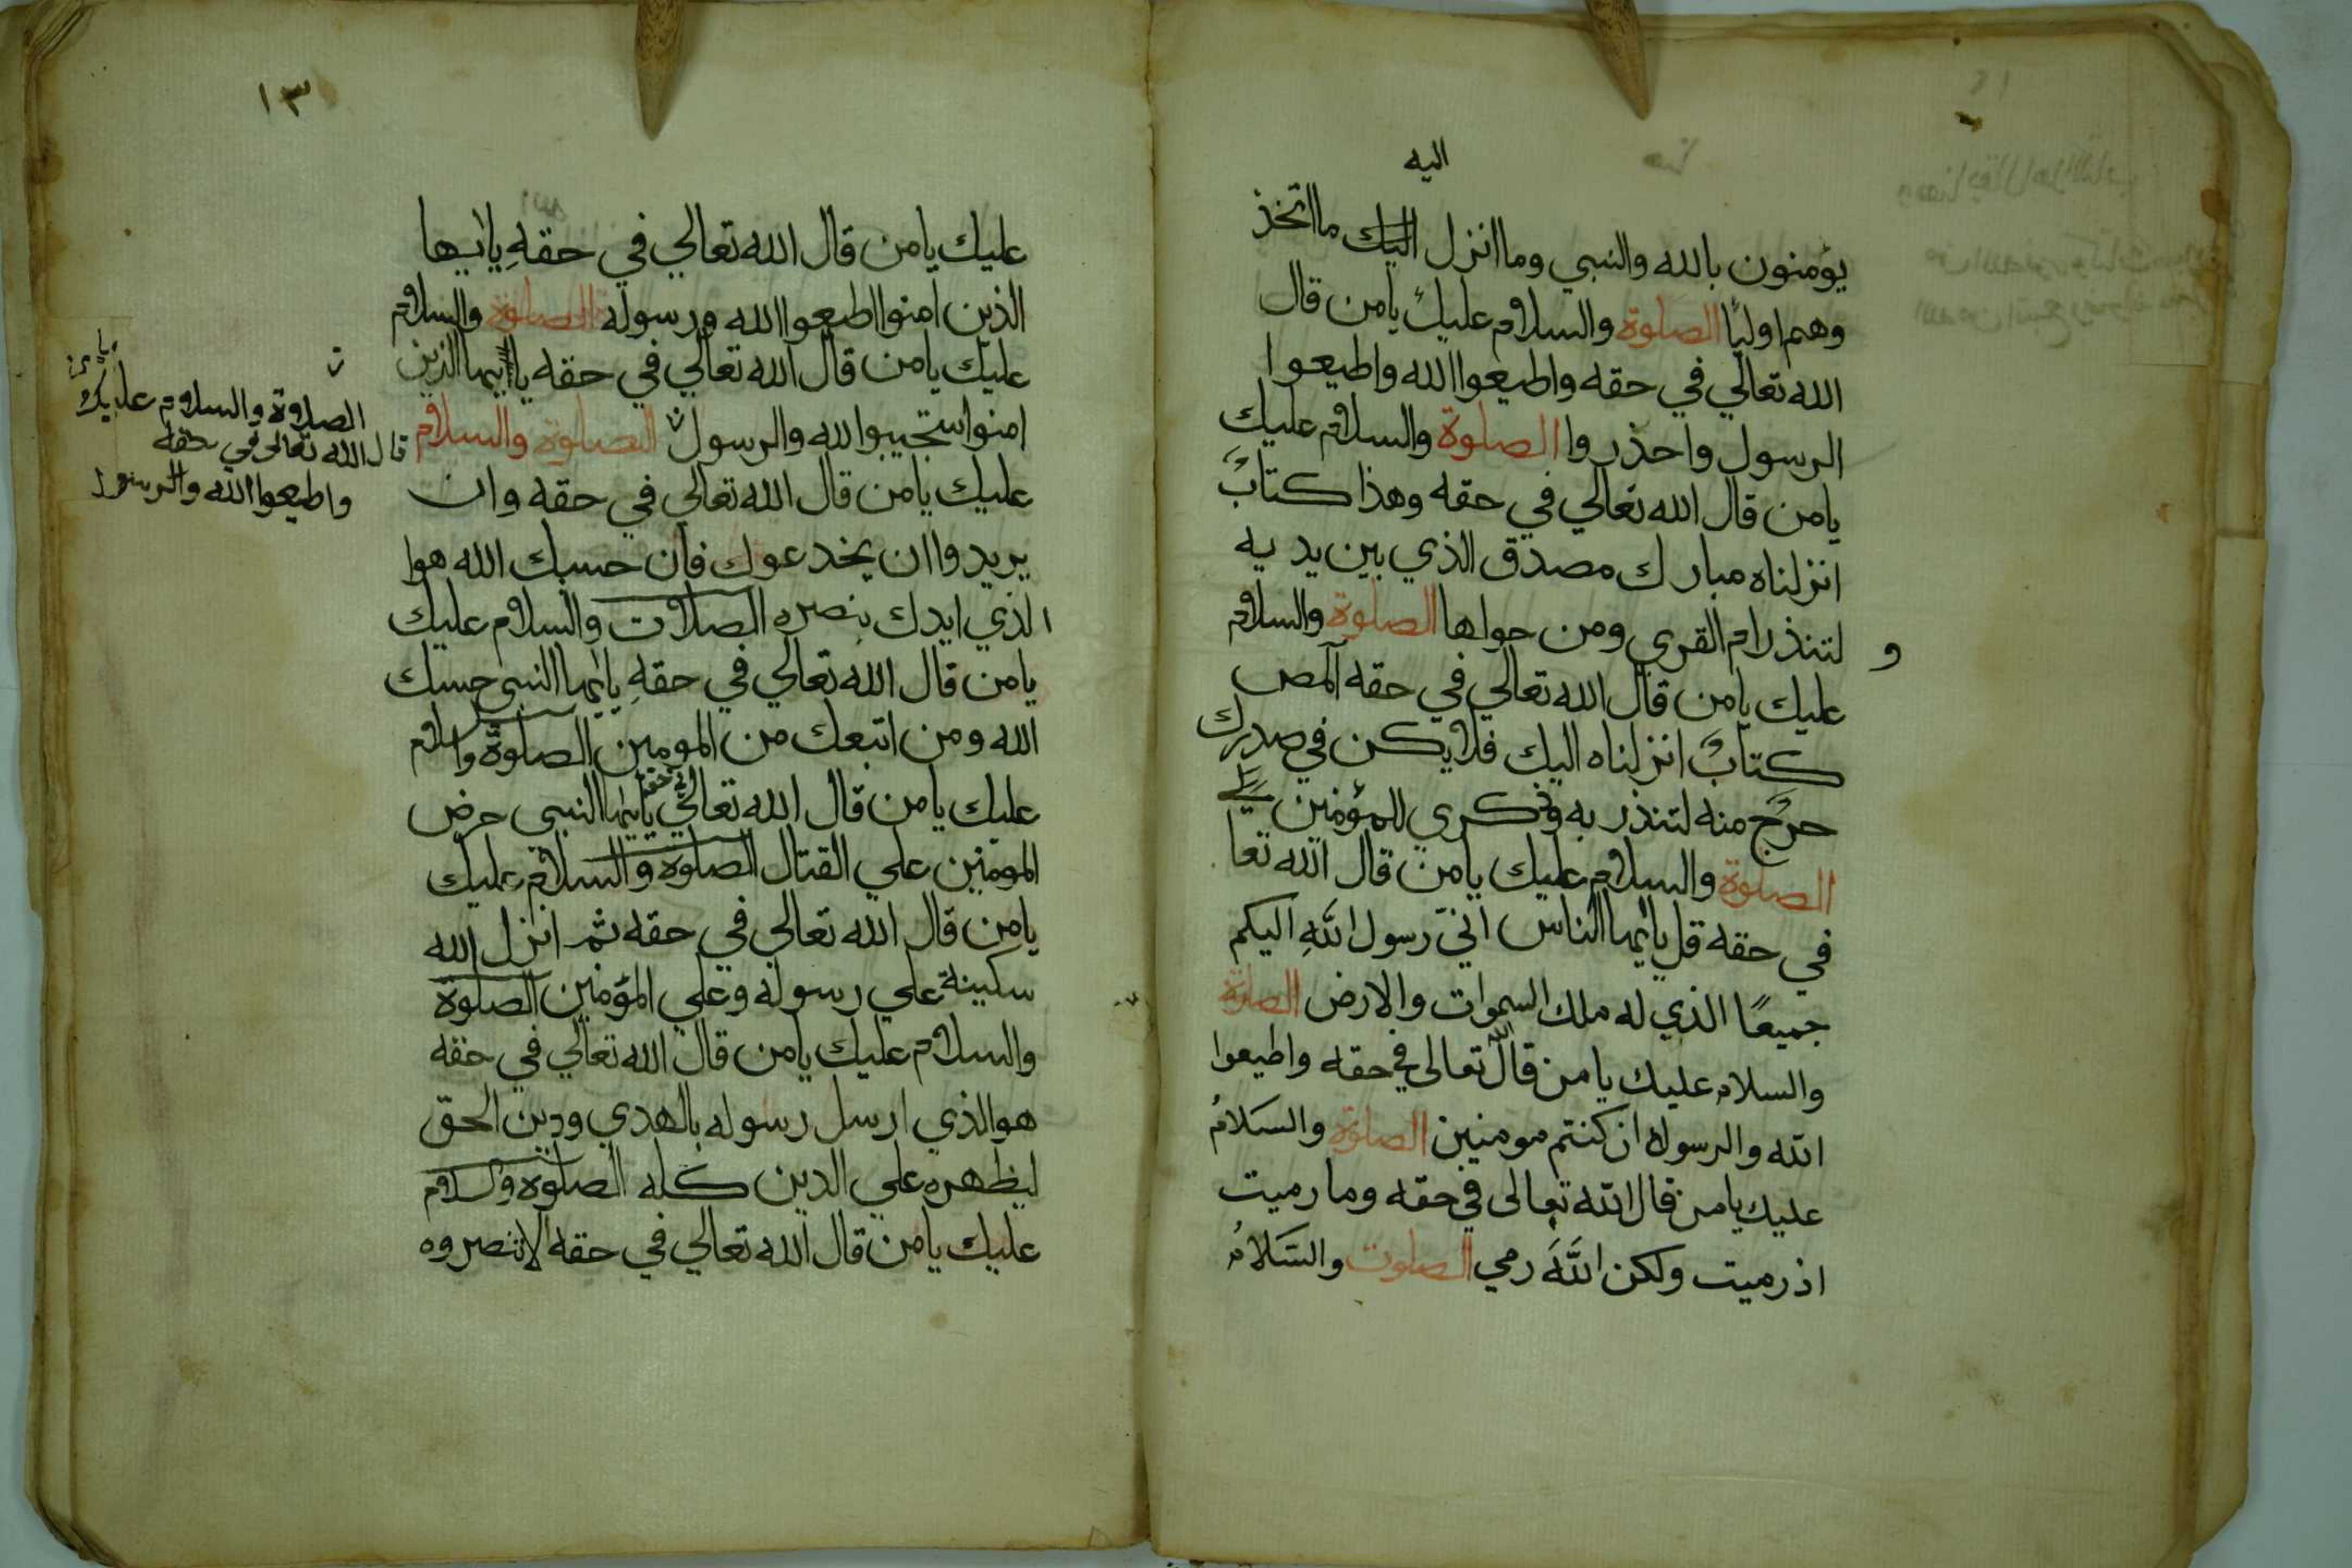 اليه
يؤمنون بالله والنبي وما انزل اليك ما اتخذ
وهم اوليًا الصلوة والسلام عليك يامن قال
الله تعالي في حقه واطيعوا الله واطيعوا
الرسول واحذروا الصلوة والسلام عليك
يامن قال الله تعالي في حقه وهذا كتابٌ
انزلناه مبارك مصدق الذي بين يديه
و لتنذر ام القري ومن حولها الصلوة والسلام
عليك يامن قال الله تعالي في حقه آلمص
كتابٌ انزلناه اليك فلا يكن في صدرك
حرجٌ منه لتنذر به وذكري للمؤمنين
الصلوة والسلام عليك يامن قال الله تعا
في حقه قل يايها الناس انيّ رسول اللهِ اليكم
جميعًا الذي له ملك السموات والارض الصلوة
والسلام عليك يامن قال الله تعالى في حقه واطيعوا
الله والرسوله ان كنتم مومنين الصلوة والسلامُ
عليك يامن قال الله تعالى في حقه وما رميت
اذ رميت ولكن اللَّهَ رمي الصلوت والسّلامُ
١٣
عليك يامن قال الله تعالي في حقهِ ياايها
الذين امنوا اطيعوا الله ورسوله الصلوة والسلام
عليك يامن قال الله تعالي في حقه ياايها الذين
امنوا استجيبوا لله والرسول الصلوة والسلام
عليك يامن قال الله تعالي في حقه وان
يريدوا ان يخدعوك فان حسبك الله هوا
الذي ايدك بنصره الصلات والسلام عليك
يامن قال الله تعالي في حقهِ يايها النبي حسبك
الله ومن اتبعك من المومين الصلوة والسلام
عليك يامن قال الله تعالي في حقه يايها النبي حرض
المومنين علي القتال الصلوة والسلام عليك
يامن قال الله تعالي في حقه ثم انزل الله
سكينة علي رسوله وعلي المؤمنين الصلوة
والسلام عليك يامن قال الله تعالي في حقه
هوالذي ارسل رسوله بالهدي ودين الحق
ليظهره علي الدين كله الصلوة والسلام
عليك يامن قال الله تعالي في حقه الا تنصروه
يامن
الصلاوة والسلام عليك
قال الله تعالى في حقه
واطيعوا الله والرسول